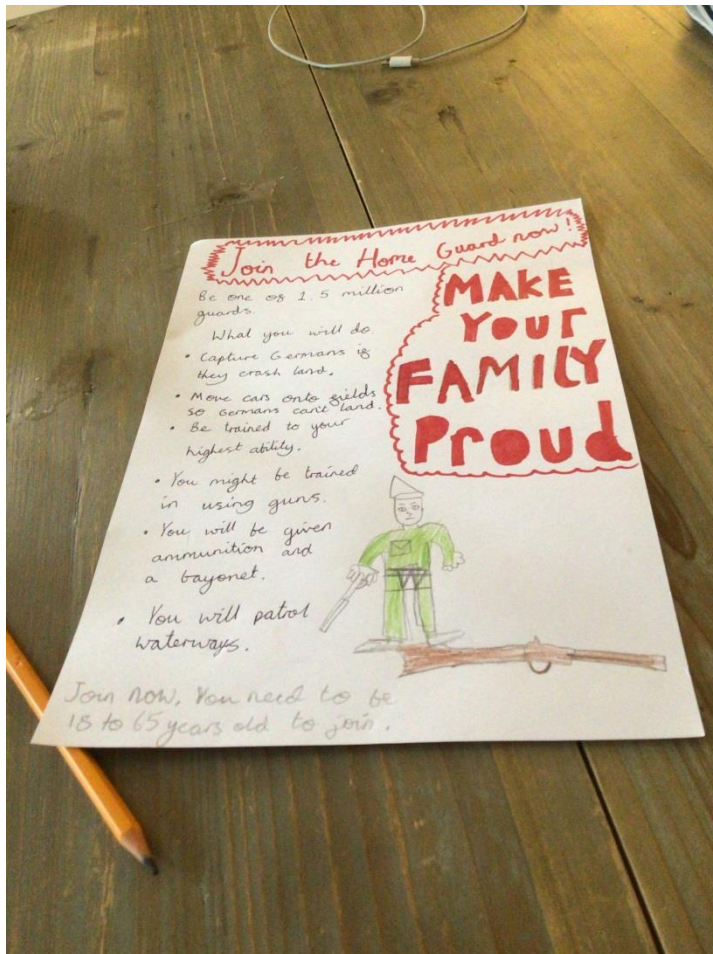 Join the Home Guard now!
Be one of 1.5 million
guards.
What you will do
• Capture Germans if
they crash land.
• Move cars onto fields
so Germans can't land.
• Be trained to your
highest ability.
• You might be trained
in using guns.
• You will be given
ammunition and
a bayonet.
• You will patrol
waterways.
MAKE
Your
FAMILY
Proud
Join now, You need to be
18 to 65 years old to join.